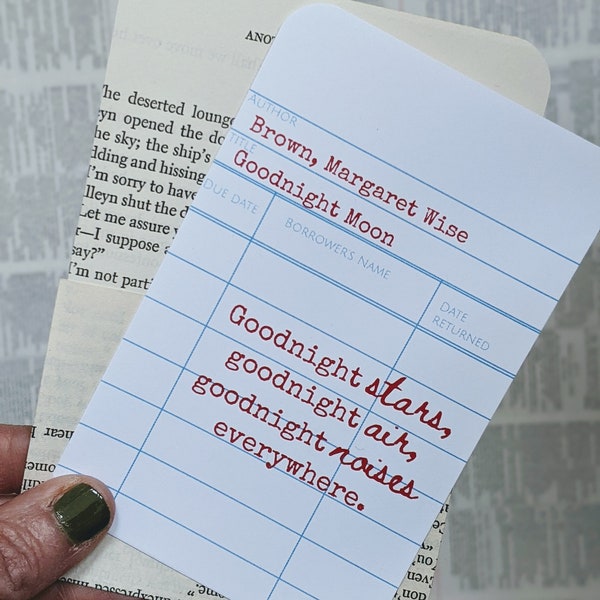 ANO
he deserted loung
yn opened the do
he sky; the ship's
dding and hissing
I'm sorry to have
lleyn shut the d
Let me assure
—I suppose
say?"
I'm not parti
AUTHOR
Brown, Margaret Wise
TITLE
Goodnight Moon
DUE DATE
BORROWER'S NAME
DATE
RETURNED
Goodnight stars,
goodnight air,
goodnight noises
everywhere.
near
come